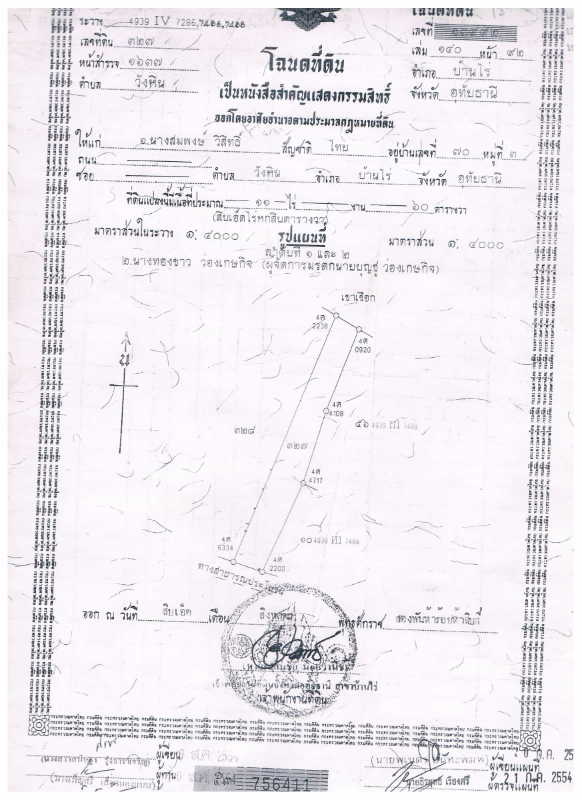 ระวาง 4939 IV 7286,7486,7488
เลขที่ดิน ๓๒๗
หน้าสำรวจ ๑๖๓๗
ตำบล วังหิน
โฉนดที่ดิน
เลขที่
เล่ม ๑๔๐ หน้า ๙๒
อำเภอ บ้านไร่
จังหวัด อุทัยธานี
โฉนดที่ดิน
เป็นหนังสือสำคัญแสดงกรรมสิทธิ์
ออกโดยอาศัยอำนาจตามประมวลกฎหมายที่ดิน
ให้แก่ ๑.นางสมพงษ์ วิสิทธิ์ สัญชาติ ไทย อยู่บ้านเลขที่ ๗๐ หมู่ที่ ๓
ถนน
ซอย ตำบล วังหิน อำเภอ บ้านไร่ จังหวัด อุทัยธานี
ที่ดินแปลงนี้มีเนื้อที่ประมาณ ๑๑ ไร่ งาน ๖๐ ตารางวา
(สิบเอ็ดไร่หกสิบตารางวา)
มาตราส่วนในระวาง ๑: ๔๐๐๐ รูปแผนที่ มาตราส่วน ๑: ๔๐๐๐
ลำดับที่ ๑ และ ๒
๒.นางทองขาว วองเกษกิจ (ผู้จัดการมรดกนายบุญชู วองเกษกิจ)
เขาเชือก
4ศ 2238
4ศ 0920
น
4ศ 4108
๓๒๘
๓๒๗
๕๖ 4939 III 7488
4ศ 4717
๑๐ 4939
4ศ 6334
4ศ 2200
ทางสาธารณประโยชน์
ออก ณ วันที่ สิบเอ็ด เดือน สิงหาคม พุทธศักราช สองพันห้าร้อยห้าสิบสี่
เจ้าพนักงานที่ดิน
ผู้เขียน
ผู้ทาน
756411
ผู้เขียนแผนที่
ผู้ตรวจแผนที่
2 1 ก.ค. 2554